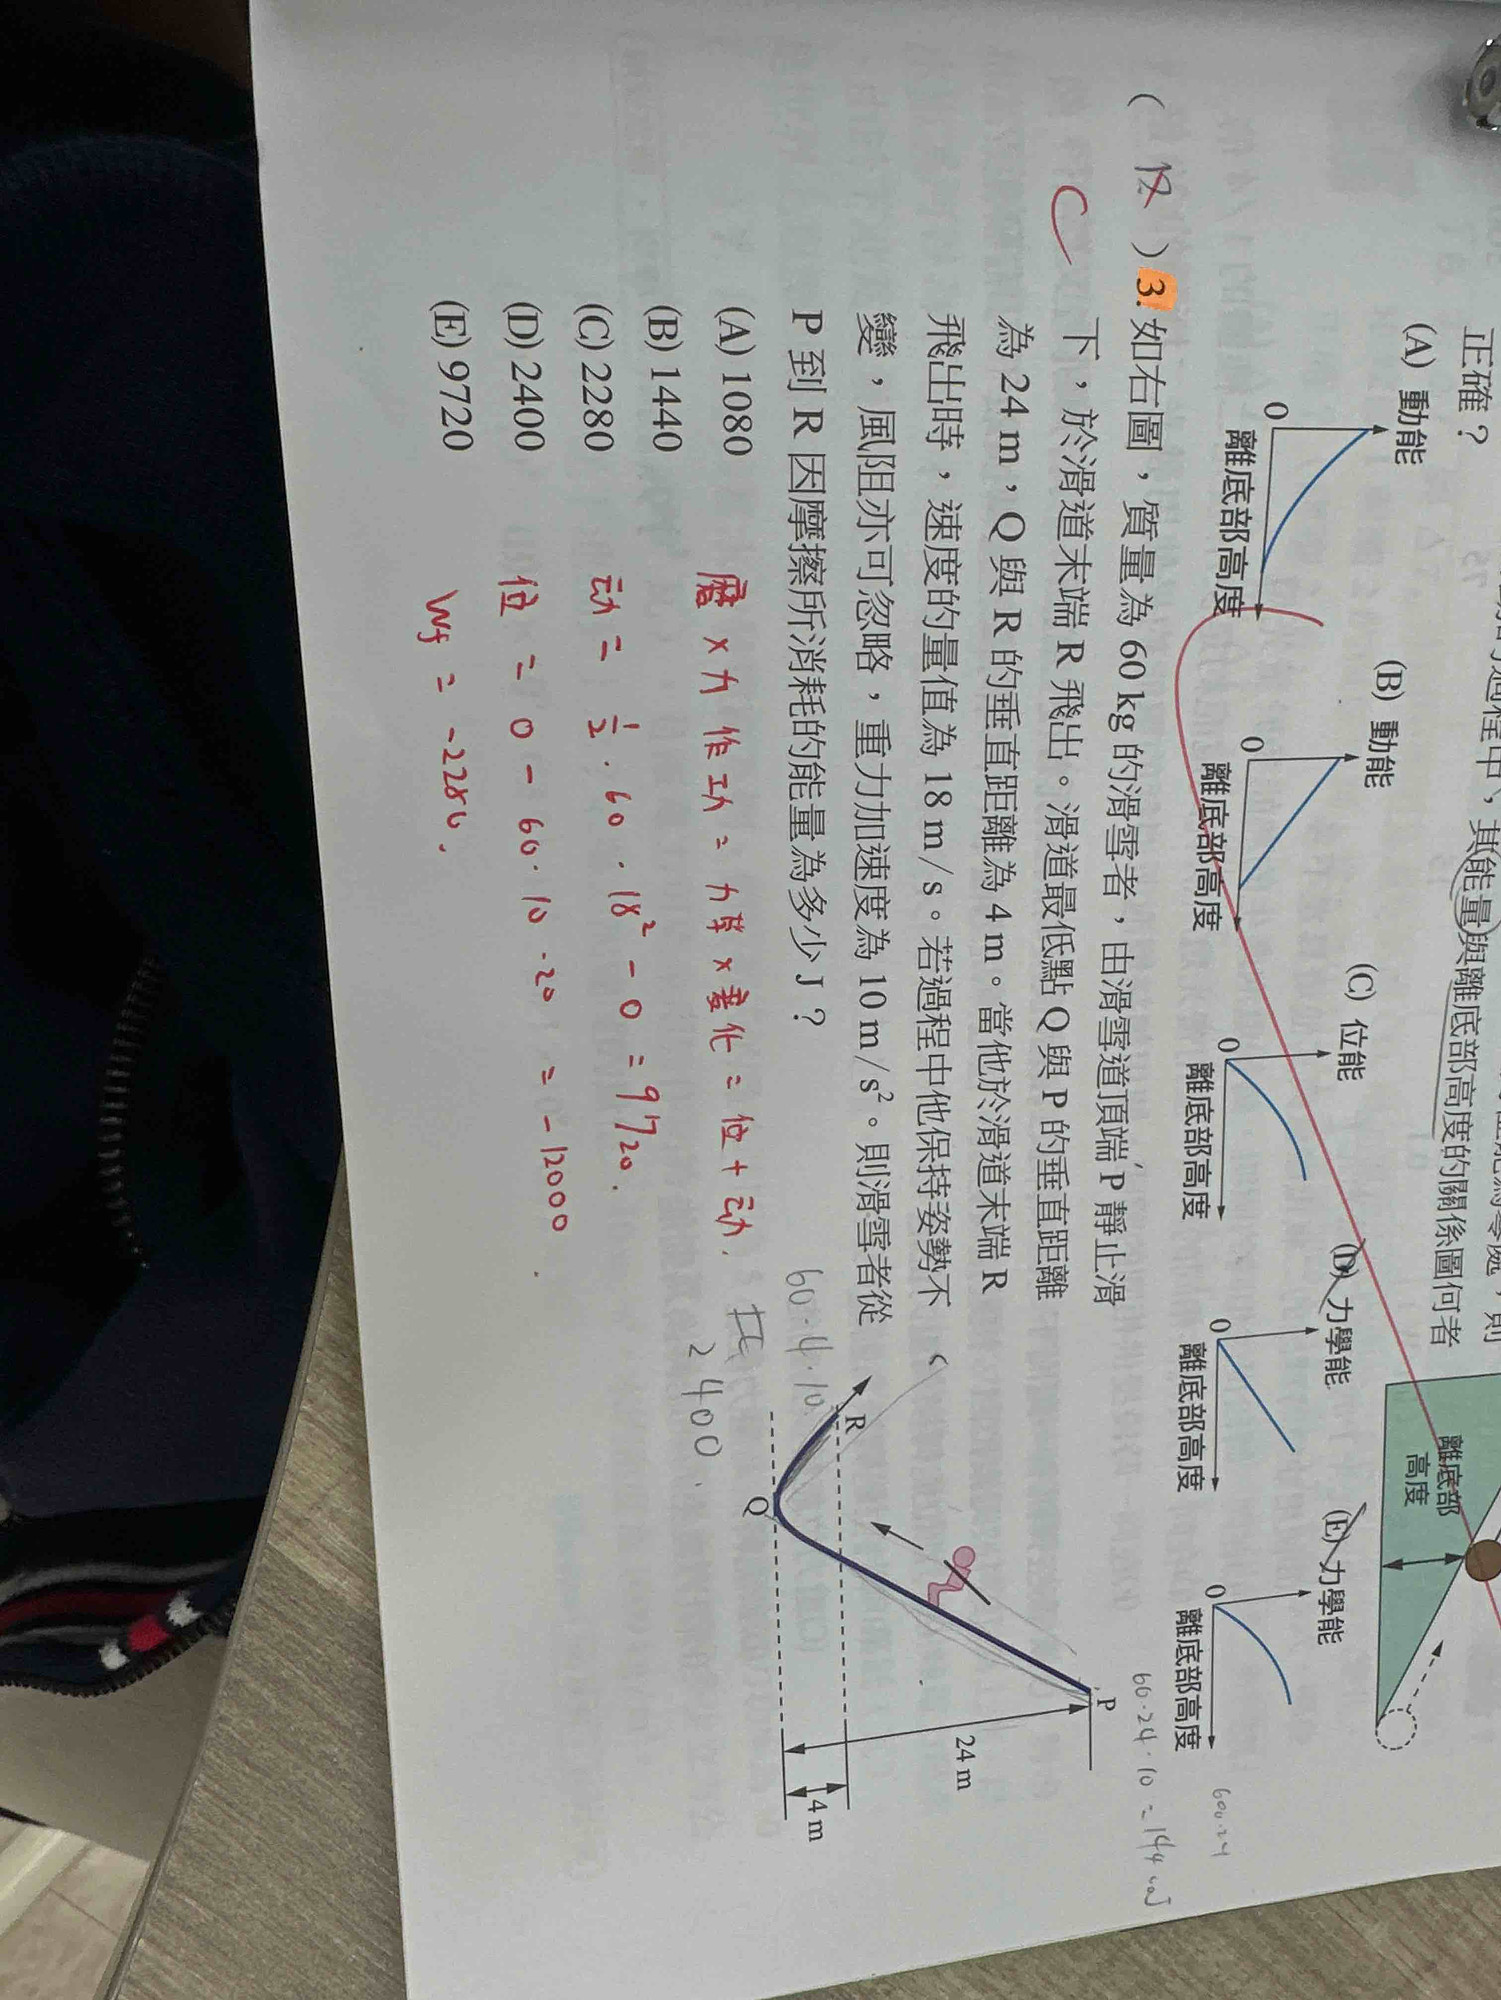 正確？
的過程中，其能量與離底部高度的關係圖何者
(A) 動能
0
離底部高度
(B) 動能
0
離底部高度
(C) 位能
0
離底部高度
(D) 力學能
0
離底部高度
(E) 力學能
0
離底部高度
離底部
高度
( ) 3. 如右圖，質量為 60 kg 的滑雪者，由滑雪道頂端 P 靜止滑
C
下，於滑道末端 R 飛出。滑道最低點 Q 與 P 的垂直距離
為 24 m，Q 與 R 的垂直距離為 4 m。當他於滑道末端 R
飛出時，速度的量值為 18 m / s。若過程中他保持姿勢不
變，風阻亦可忽略，重力加速度為 10 m / s²。則滑雪者從
P 到 R 因摩擦所消耗的能量為多少 J？
(A) 1080
(B) 1440
(C) 2280
(D) 2400
(E) 9720
P
R
Q
24 m
4 m
作功 = 化 = 位 + 动.
动 = 1/2 · 60 · 18² - 0 = 9720.
位 = 0 - 60 · 10 · 20 = -12000
Wf = -2280.
60·4·10
2400
60·24·10 =
600·24